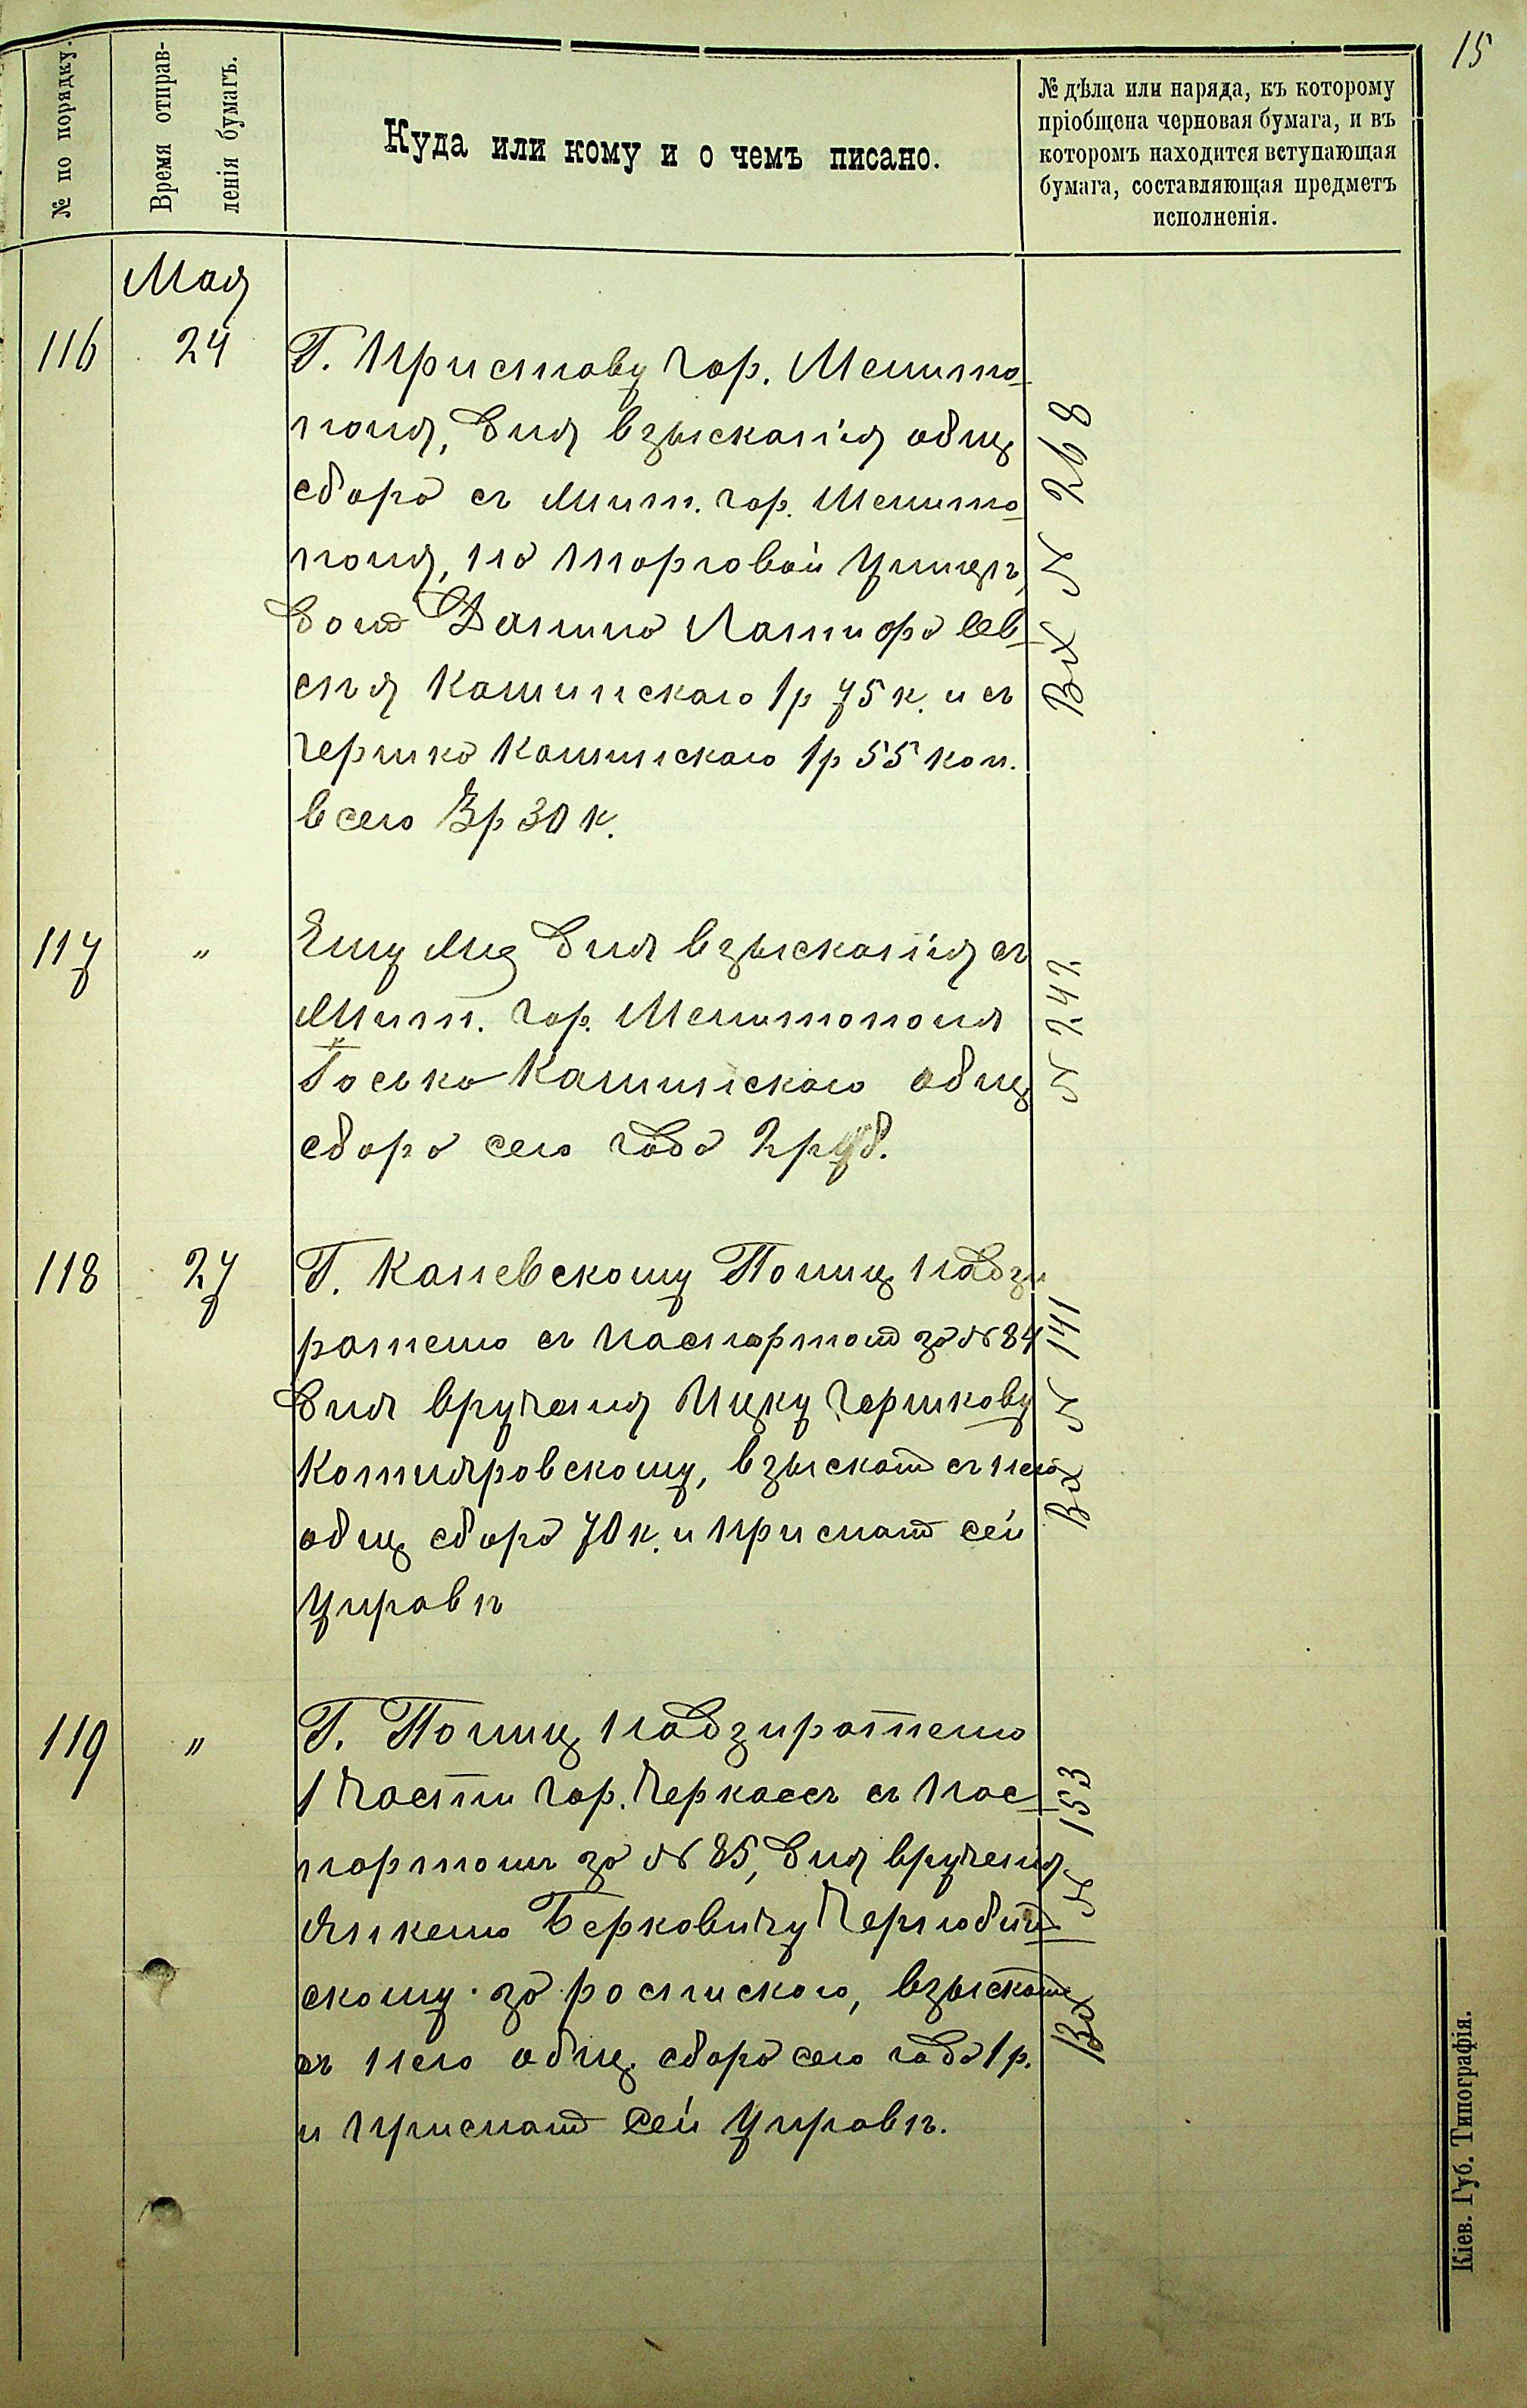 15
№ по порядку.
Время отправ-
ленія бумагъ.
Куда или кому и о чемъ писано.
№ дѣла или наряда, къ которому
пріобщена черновая бумага, и въ
которомъ находится вступающая
бумага, составляющая предметъ
исполненія.
Мая
116 24 Г. Приставу гор. Мелито
поля, для взысканія общ
сбора съ жит. гор. Мелито
поля, по торговой улицѣ,
дом Лев
Каминскаго 1р 75 к. и съ
Гершка Каминскаго 1р 55 коп.
всего 3р 30 к.
Вх № 268
117 " Ему же для взысканія съ
жит. гор. Мелитополя
Іоська Каминскаго общ
сбора сего года 2 руб.
№ 247
118 27 Г. Каневскому Полиц надзи
рателю съ паспортом за № 84
для врученія Ицку Гершкову
Котляровскому, взыскат съ него
общ сбора 70 к. и прислат сей
Управѣ
Вх № 141
119 " Г. Полиц надзирателю
1 части гор. Черкассъ съ пас
портомъ за № 85, для врученія
Янкелю Берковичу Чернобил
скому за роспискою, взыскат
съ него общ. сбора сего года 1 р.
и прислат сей Управѣ.
Вх № 153
Кіев. Губ. Типографія.